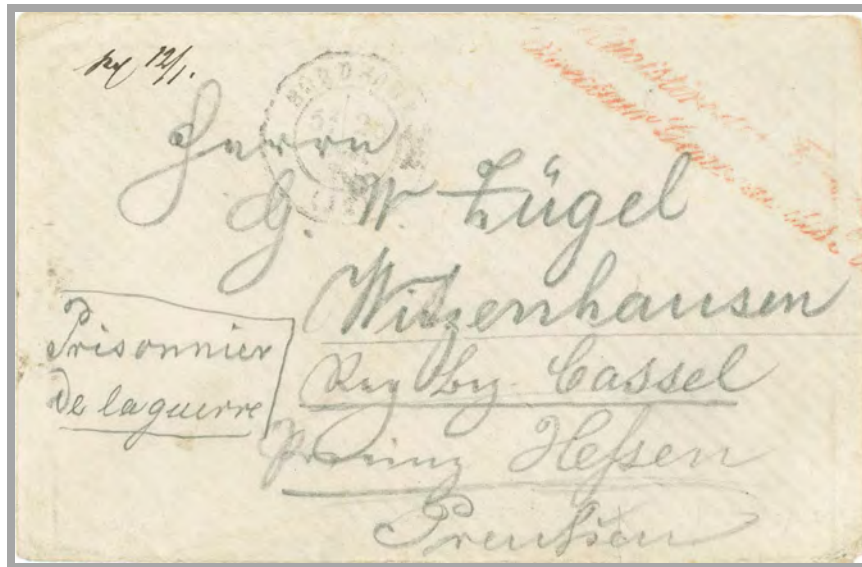 12/1.
BORDEAUX
Herrn
G. W. Zügel
Witzenhausen
Reg Bez Cassel
Provinz Heſsen
Preußen
Prisonnier
De la guerre